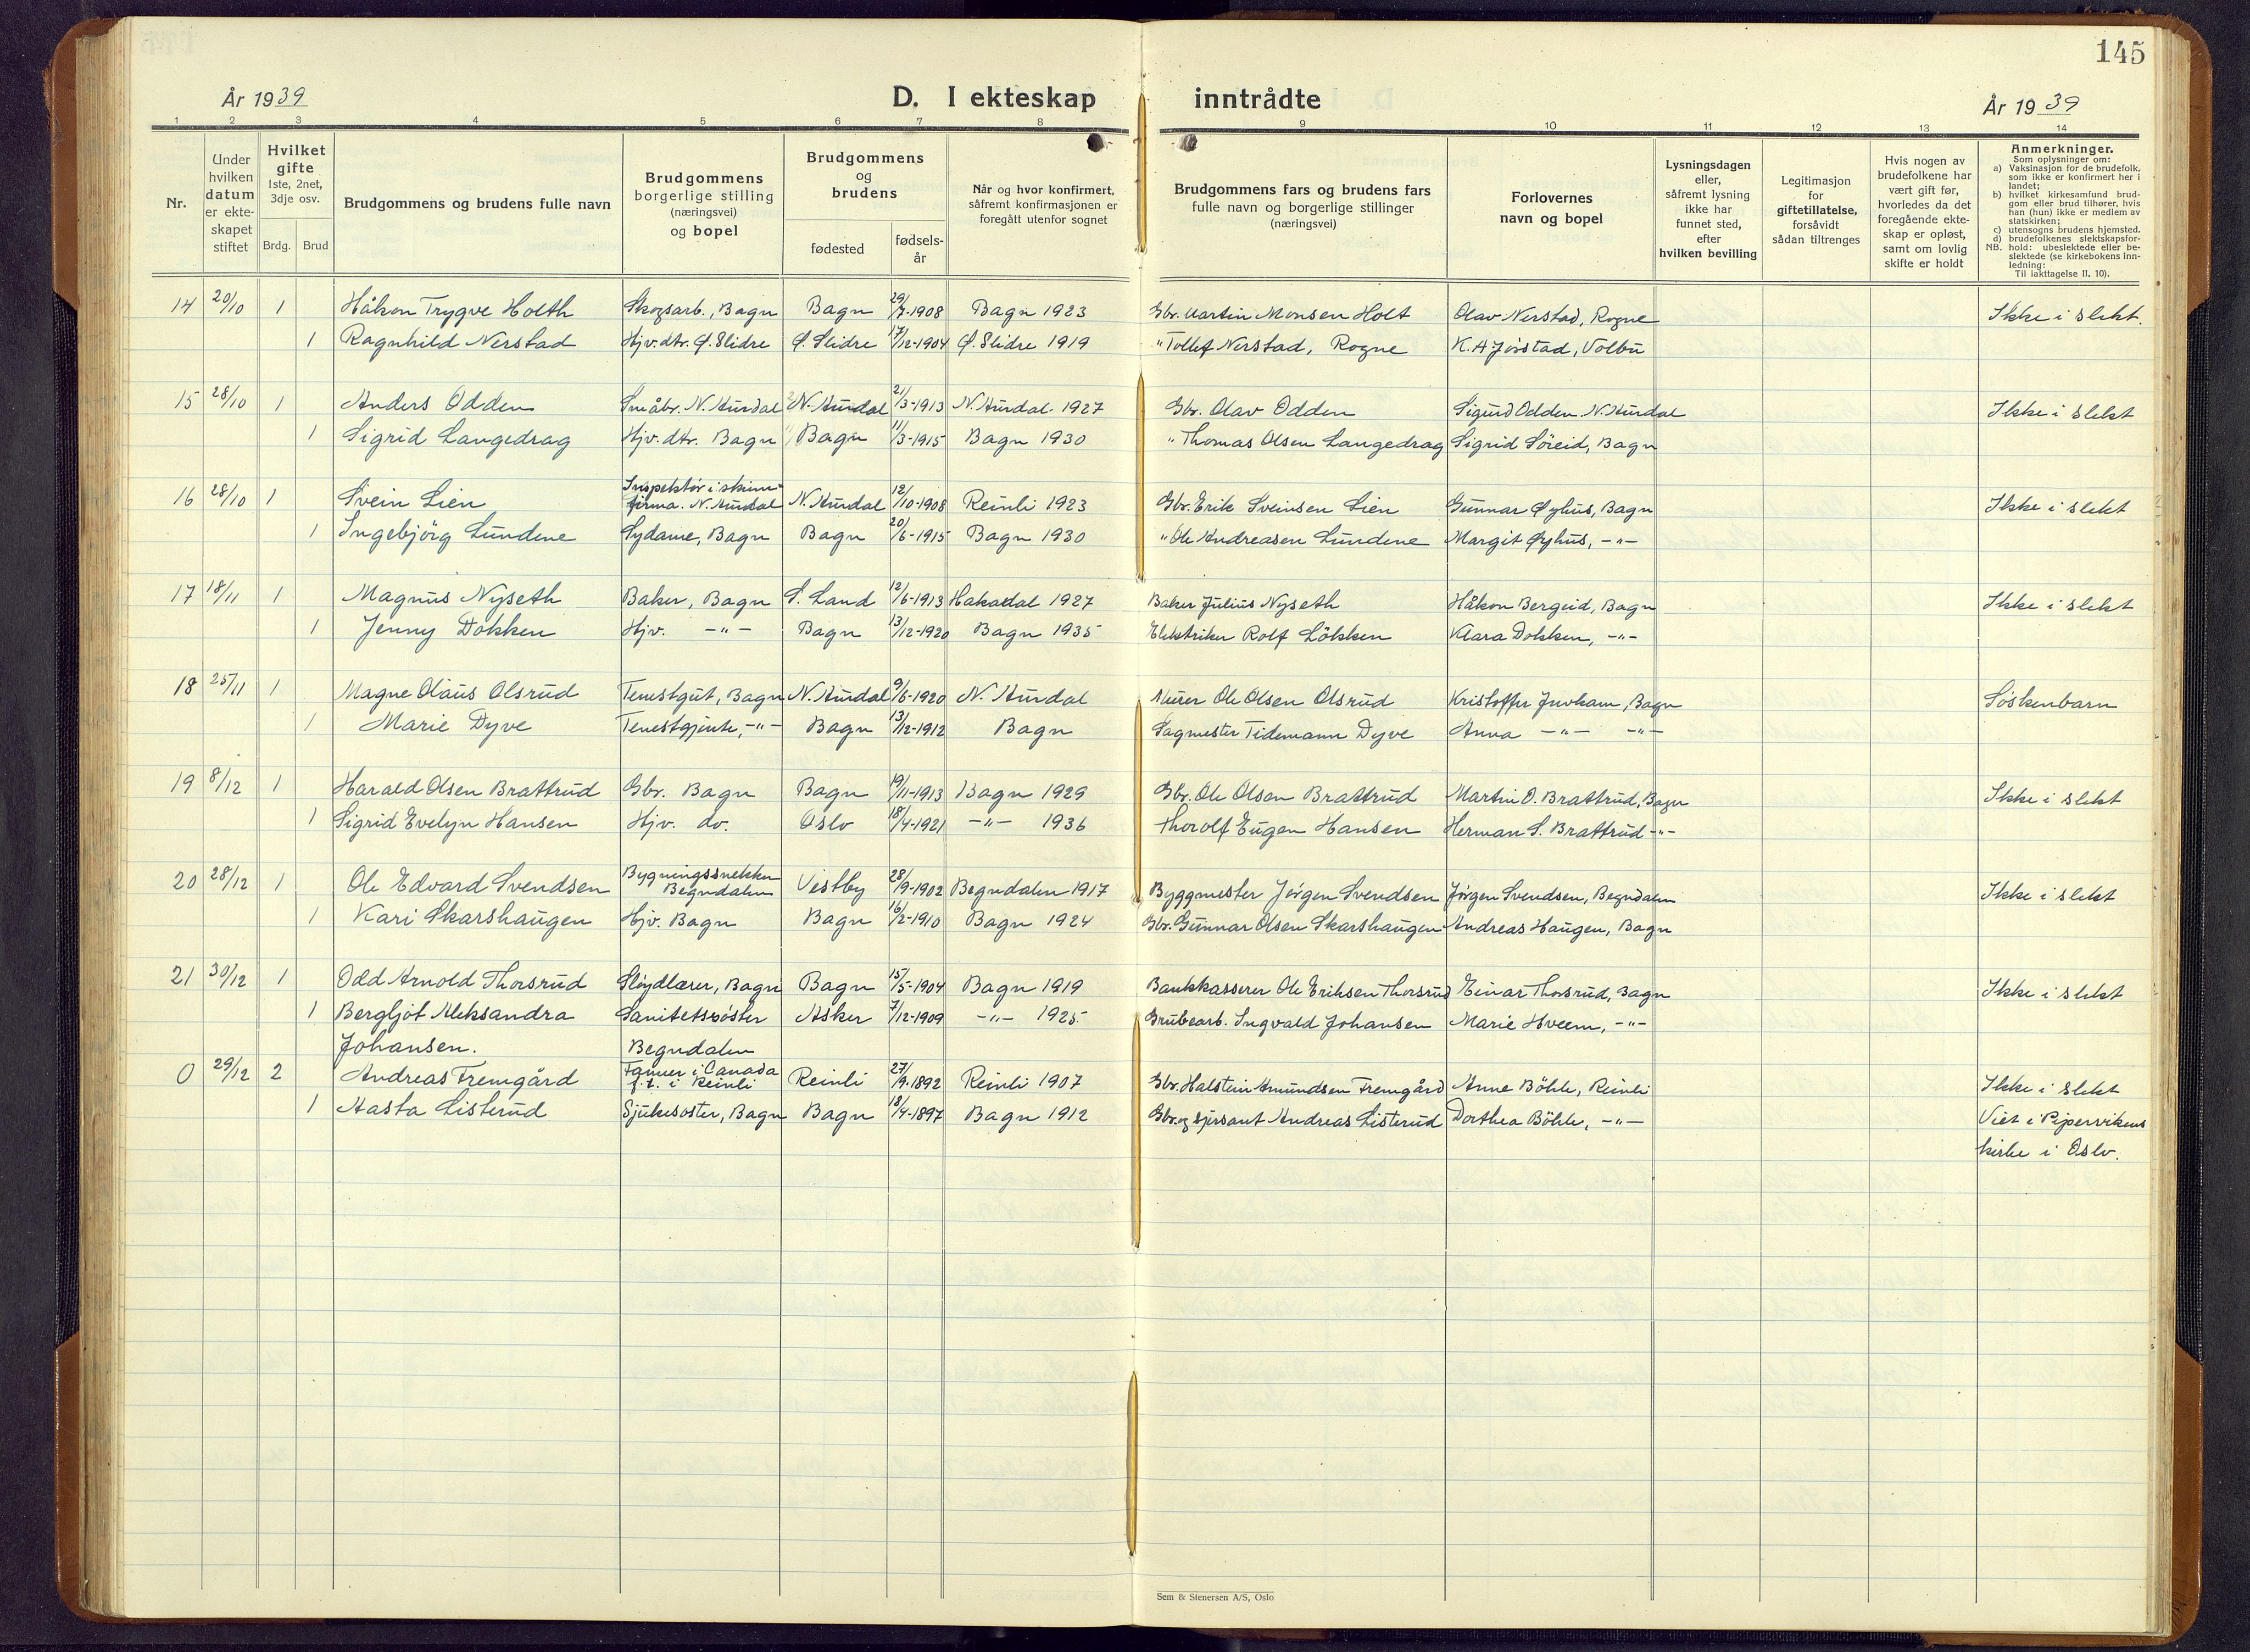 145
År 1939
D. I ekteskap inntrådte
År 1939
1 2 3 4 5 6 7 8 9 10 11 12 13 14
Nr.
Under hvilken datum er ekte-skapet stiftet
Hvilket gifte 1ste, 2net, 3dje osv.
Brdg. Brud
Brudgommens og brudens fulle navn
Brudgommens borgerlige stilling (næringsvei) og bopel
Brudgommens og brudens
fødested fødsels-år
Når og hvor konfirmert, såfremt konfirmasjonen er foregått utenfor sognet
Brudgommens fars og brudens fars fulle navn og borgerlige stillinger (næringsvei)
Forlovernes navn og bopel
Lysningsdagen eller, såfremt lysning ikke har funnet sted, efter hvilken bevilling
Legitimasjon for giftetillatelse, forsåvidt sådan tiltrenges
Hvis nogen av brudefolkene har vært gift før, hvorledes da det foregående ekte-skap er opløst, samt om lovlig skifte er holdt
Anmerkninger.
Som oplysninger om:
a) Vaksinasjon for de brudefolk. som ikke er konfirmert her i landet;
b) hvilket kirkesamfund brud-gom eller brud tilhører, hvis han (hun) ikke er medlem av statskirken;
c) utensogns brudens hjemsted.
d) brudefolkenes slektskapsfor-hold: ubeslektede eller be-slektede (se kirkebokens inn-ledning:
NB. Til iakttagelse II. 10).
14 20/10 1 Håkon Trygve Holth Skogsarb., Bagn Bagn 29/7-1908 Bagn 1923 Gbr. Martin Monsen Holt Olav Nerstad, Rogne Ikke i slekt.
1 Ragnhild Nerstad Hjv. dtr. Ø. Slidre Ø. Slidre 17/12-1904 Ø. Slidre 1919 " Tollef Nerstad, Rogne K. A. Jøstad, Volbu
15 28/10 1 Anders Odden Småbr. N. Aurdal N. Aurdal 21/3-1913 N. Aurdal 1927 Gbr. Olav Odden Sigurd Odden N. Aurdal Ikke i slekt
1 Sigrid Langedrag Hjv. dtr. Bagn Bagn 11/3-1915 Bagn 1930 " Thomas Olsen Langedrag Sigrid Søreid, Bagn
16 28/10 1 Svein Lien Inspektør i skinn-firma. N. Aurdal N. Aurdal 12/10-1908 Reinli 1923 Gbr. Erik Sveinsen Lien Gunnar Øyhus, Bagn Ikke i slekt
1 Ingebjörg Lundene Sydame, Bagn Bagn 20/6-1915 Bagn 1930 " Ole Andreasen Lundene Margit Øyhus, -"-
17 18/11 1 Magnus Nyseth Baker, Bagn S. Land 12/6-1913 Hakadal 1927 Baker Julius Nyseth Håkon Bergeid, Bagn Ikke i slekt
1 Jenny Dokken Hjv. -"- Bagn 13/12-1920 Bagn 1935 Elektriker Rolf Lökken Klara Dokken, -"-
18 25/11 1 Magne Olaus Olsrud Tenestgut, Bagn N. Aurdal 9/6-1920 N. Aurdal Murer Ole Olsen Olsrud Kristoffer Juvkam, Bagn Söskenbarn
1 Marie Dyve Tenestgjente, -"- Bagn 13/12-1912 Bagn Sagmester Tidemann Dyve Anna -"- -"-
19 8/12 1 Harald Olsen Brattrud Gbr. Bagn Bagn 19/11-1913 Bagn 1929 Gbr. Ole Olsen Brattrud Martin O. Brattrud, Bagn Ikke i slekt
1 Sigrid Evelyn Hansen Hjv. do. Oslo 18/4-1921 -"- 1936 Thorolf Eugen Hansen Herman S. Brattrud -"-
20 28/12 1 Ole Edvard Svendsen Bygningssnekker Begndalen Vestby 28/9-1902 Begndalen 1917 Byggmester Jörgen Svendsen Jörgen Svendsen, Begndalen Ikke i slekt
1 Kari Skarshaugen Hjv. Bagn Bagn 16/2-1910 Bagn 1924 Gbr. Gunnar Olsen Skarshaugen Andreas Haugen, Bagn
21 30/12 1 Odd Arnold Thorsrud Slöydlærer, Bagn Bagn 15/5-1904 Bagn 1919 Bankkasserer Ole Eriksen Thorsrud Einar Thorsrud, Bagn Ikke i slekt
1 Bergljot Aleksandra Sanitetssøster Asker 7/12-1909 -"- 1925 Grubearb. Ingvald Johansen Marie Hveem, -"-
Johansen. Begndalen
0 29/12 2 Andreas Fremgård Farmer i Canada f.t. i Reinli Reinli 27/9-1892 Reinli 1907 Gbr. Halstein Amundsen Fremgård Anne Böhle, Reinli Ikke i slekt
1 Aasta Listerud Sjukesøster, Bagn Bagn 18/4-1897 Bagn 1912 Gbr. og sersant Andreas Listerud Dorthea Böhle, -"- Viet i Pipervikens
kirke i Oslo.
Sem & Stenersen A/S, Oslo